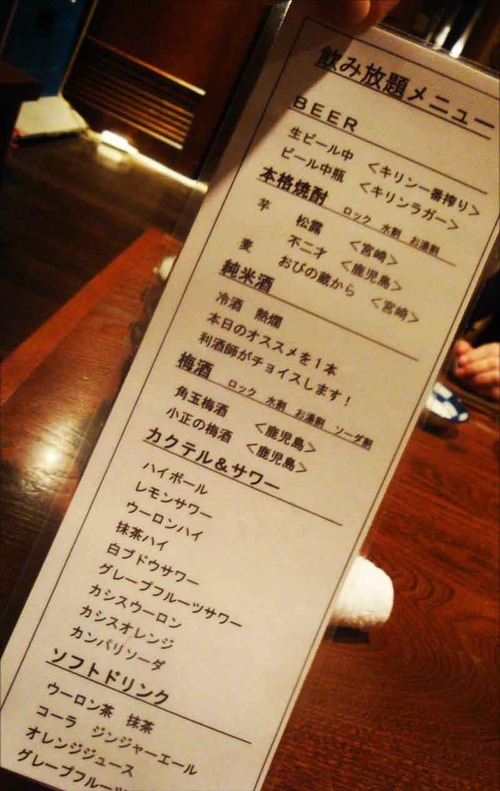 飲み放題メニュー
BEER
生ビール中 <キリン一番搾り>
ビール中瓶 <キリンラガー>
本格焼酎 ロック 水割 お湯割
芋 松露 <宮崎>
不二才 <鹿児島>
麦 おびの蔵から <宮崎>
純米酒
冷酒 熱燗
本日のオススメを1本
利酒師がチョイスします!
梅酒 ロック 水割 お湯割 ソーダ割
角玉梅酒 <鹿児島>
小正の梅酒 <鹿児島>
カクテル&サワー
ハイボール
レモンサワー
ウーロンハイ
抹茶ハイ
白ブドウサワー
グレープフルーツサワー
カシスウーロン
カシスオレンジ
カンパリソーダ
ソフトドリンク
ウーロン茶 抹茶
コーラ ジンジャーエール
オレンジジュース
グレープフルーツ